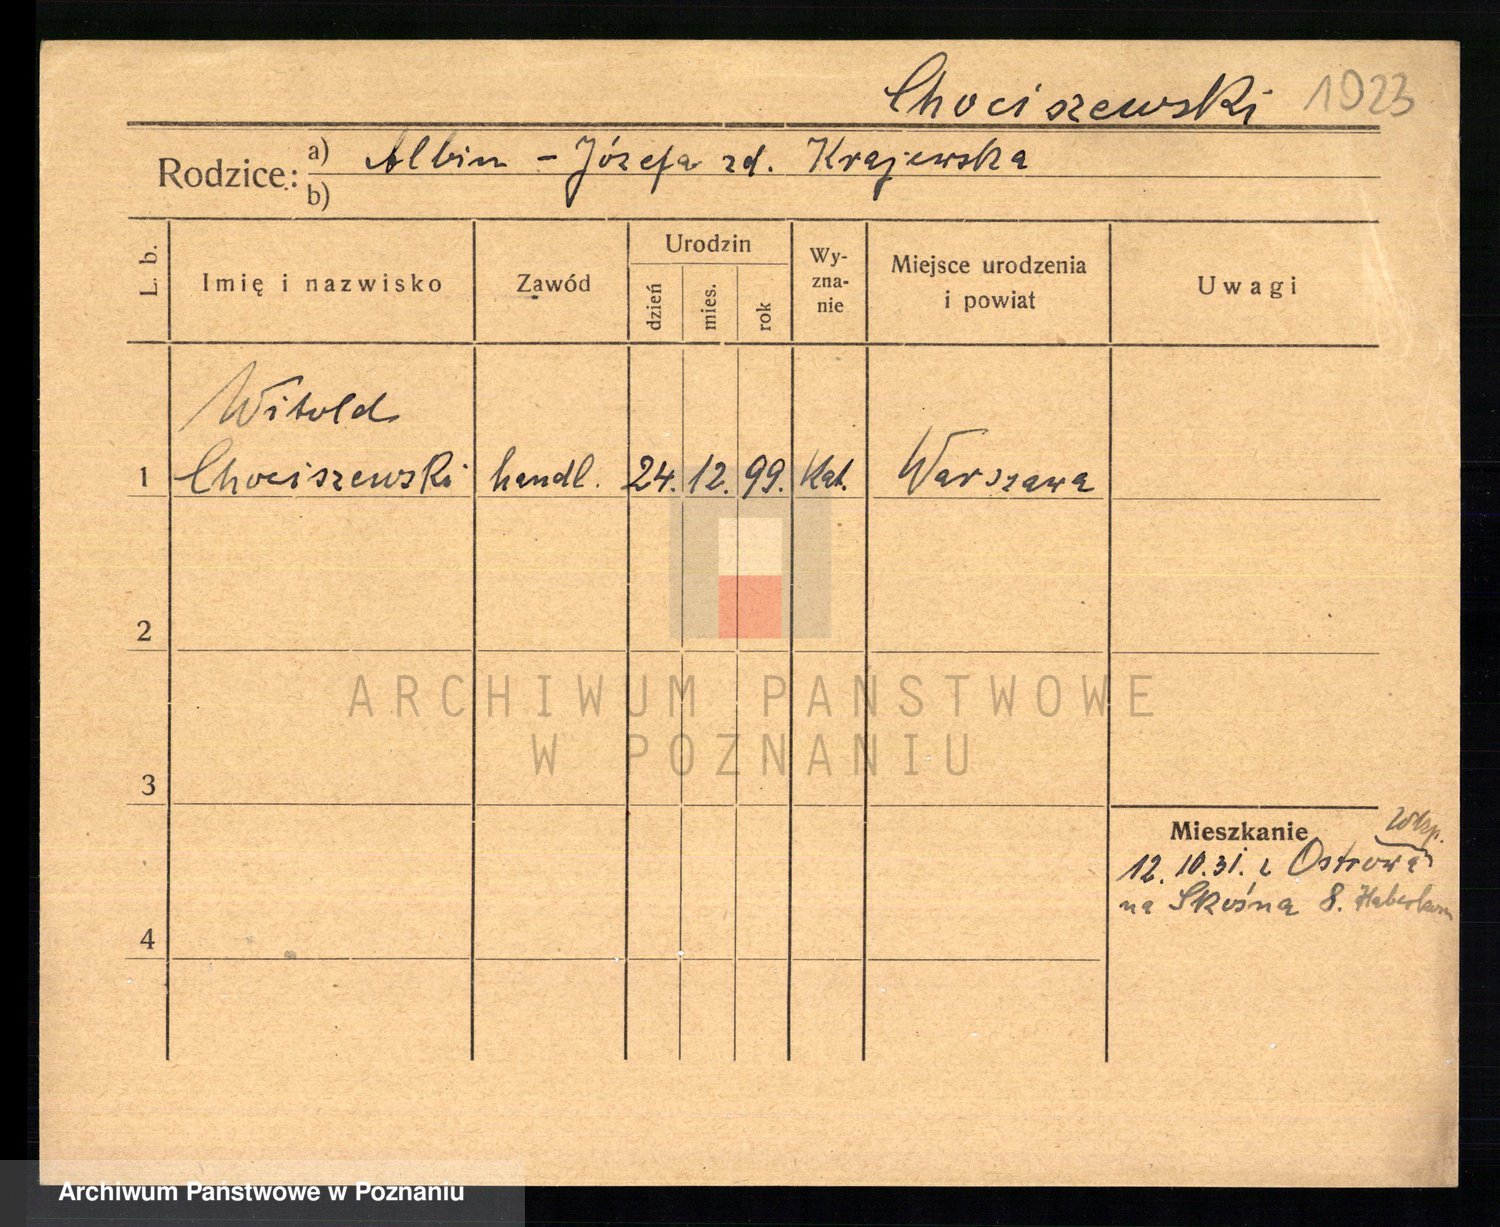 Chociszewski 1023
Rodzice: a) Albin - Józefa zd. Krajewska
b)
L. b.
Imię i nazwisko
Zawód
Urodzin
dzień
mies.
rok
Wy-
zna-
nie
Miejsce urodzenia
i powiat
Uwagi
Witold
1 Chociszewski handl. 24. 12. 99. Kat. Warszawa
2
3
4
Mieszkanie
Wlkp.
12.10.31. z Ostrowa
na Skośna 8.
ARCHIWUM PAŃSTWOWE
W POZNANIU
Archiwum Państwowe w Poznaniu